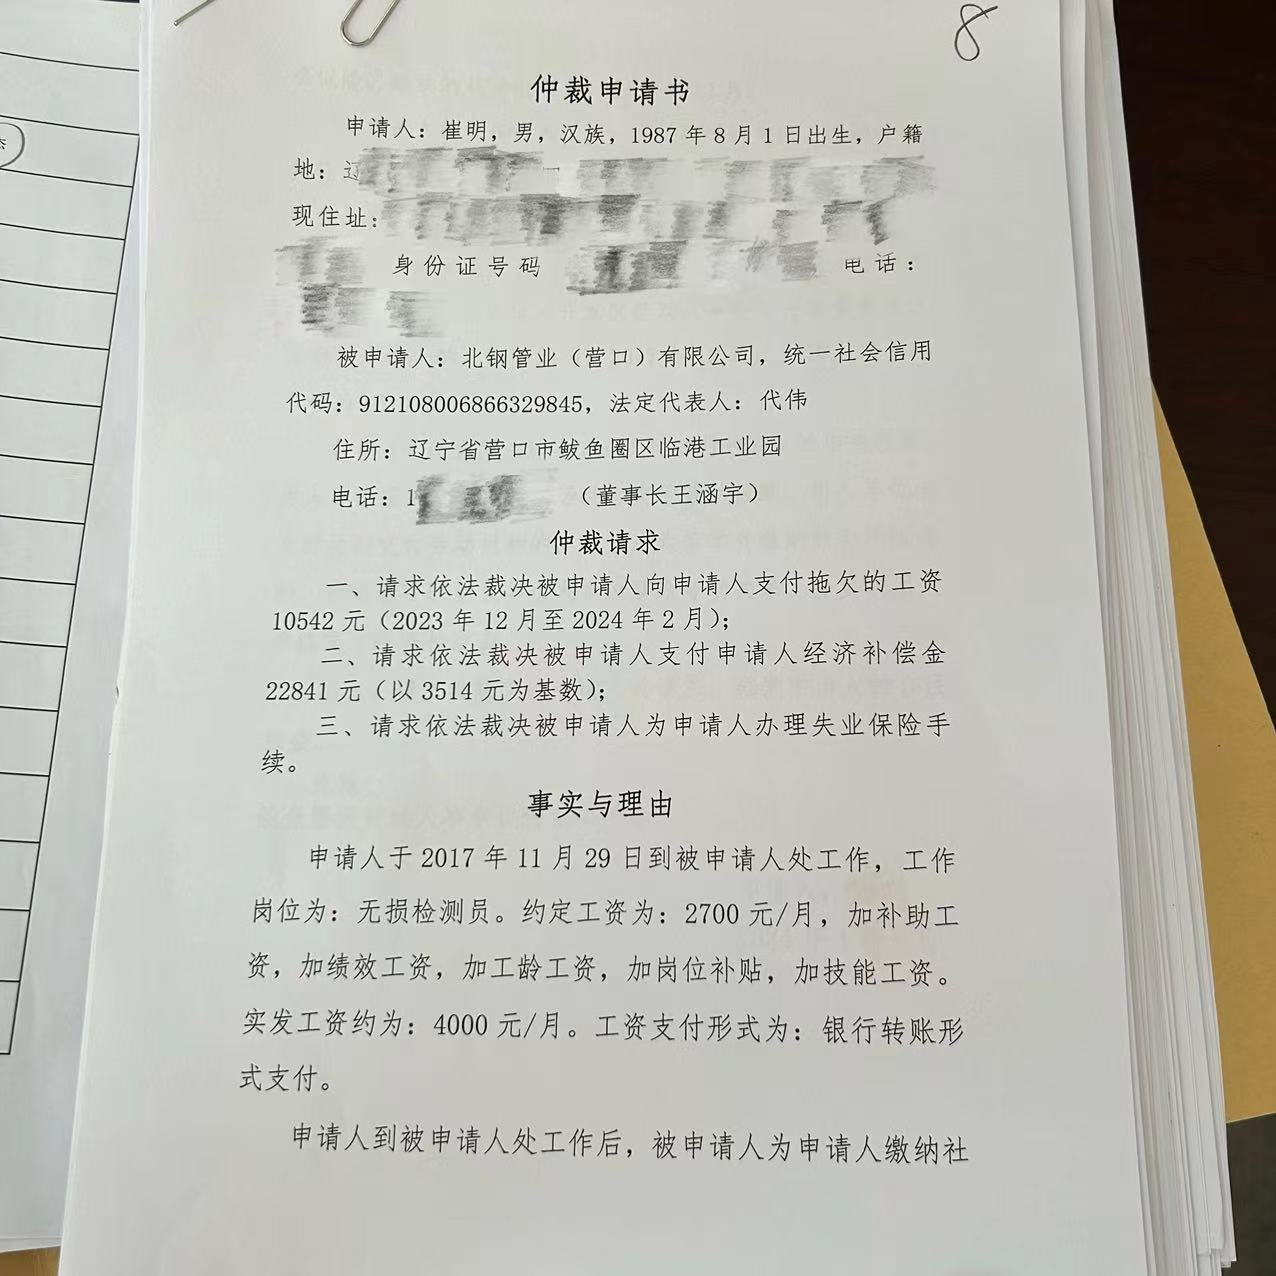 8
仲裁申请书
申请人：崔明，男，汉族，1987年8月1日出生，户籍
地：辽
现住址：
身份证号码 电话：
被申请人：北钢管业（营口）有限公司，统一社会信用
代码：912108006866329845，法定代表人：代伟
住所：辽宁省营口市鲅鱼圈区临港工业园
电话：1 （董事长王涵宇）
仲裁请求
一、请求依法裁决被申请人向申请人支付拖欠的工资
10542元（2023年12月至2024年2月）；
二、请求依法裁决被申请人支付申请人经济补偿金
22841元（以3514元为基数）；
三、请求依法裁决被申请人为申请人办理失业保险手
续。
事实与理由
申请人于2017年11月29日到被申请人处工作，工作
岗位为：无损检测员。约定工资为：2700元/月，加补助工
资，加绩效工资，加工龄工资，加岗位补贴，加技能工资。
实发工资约为：4000元/月。工资支付形式为：银行转账形
式支付。
申请人到被申请人处工作后，被申请人为申请人缴纳社